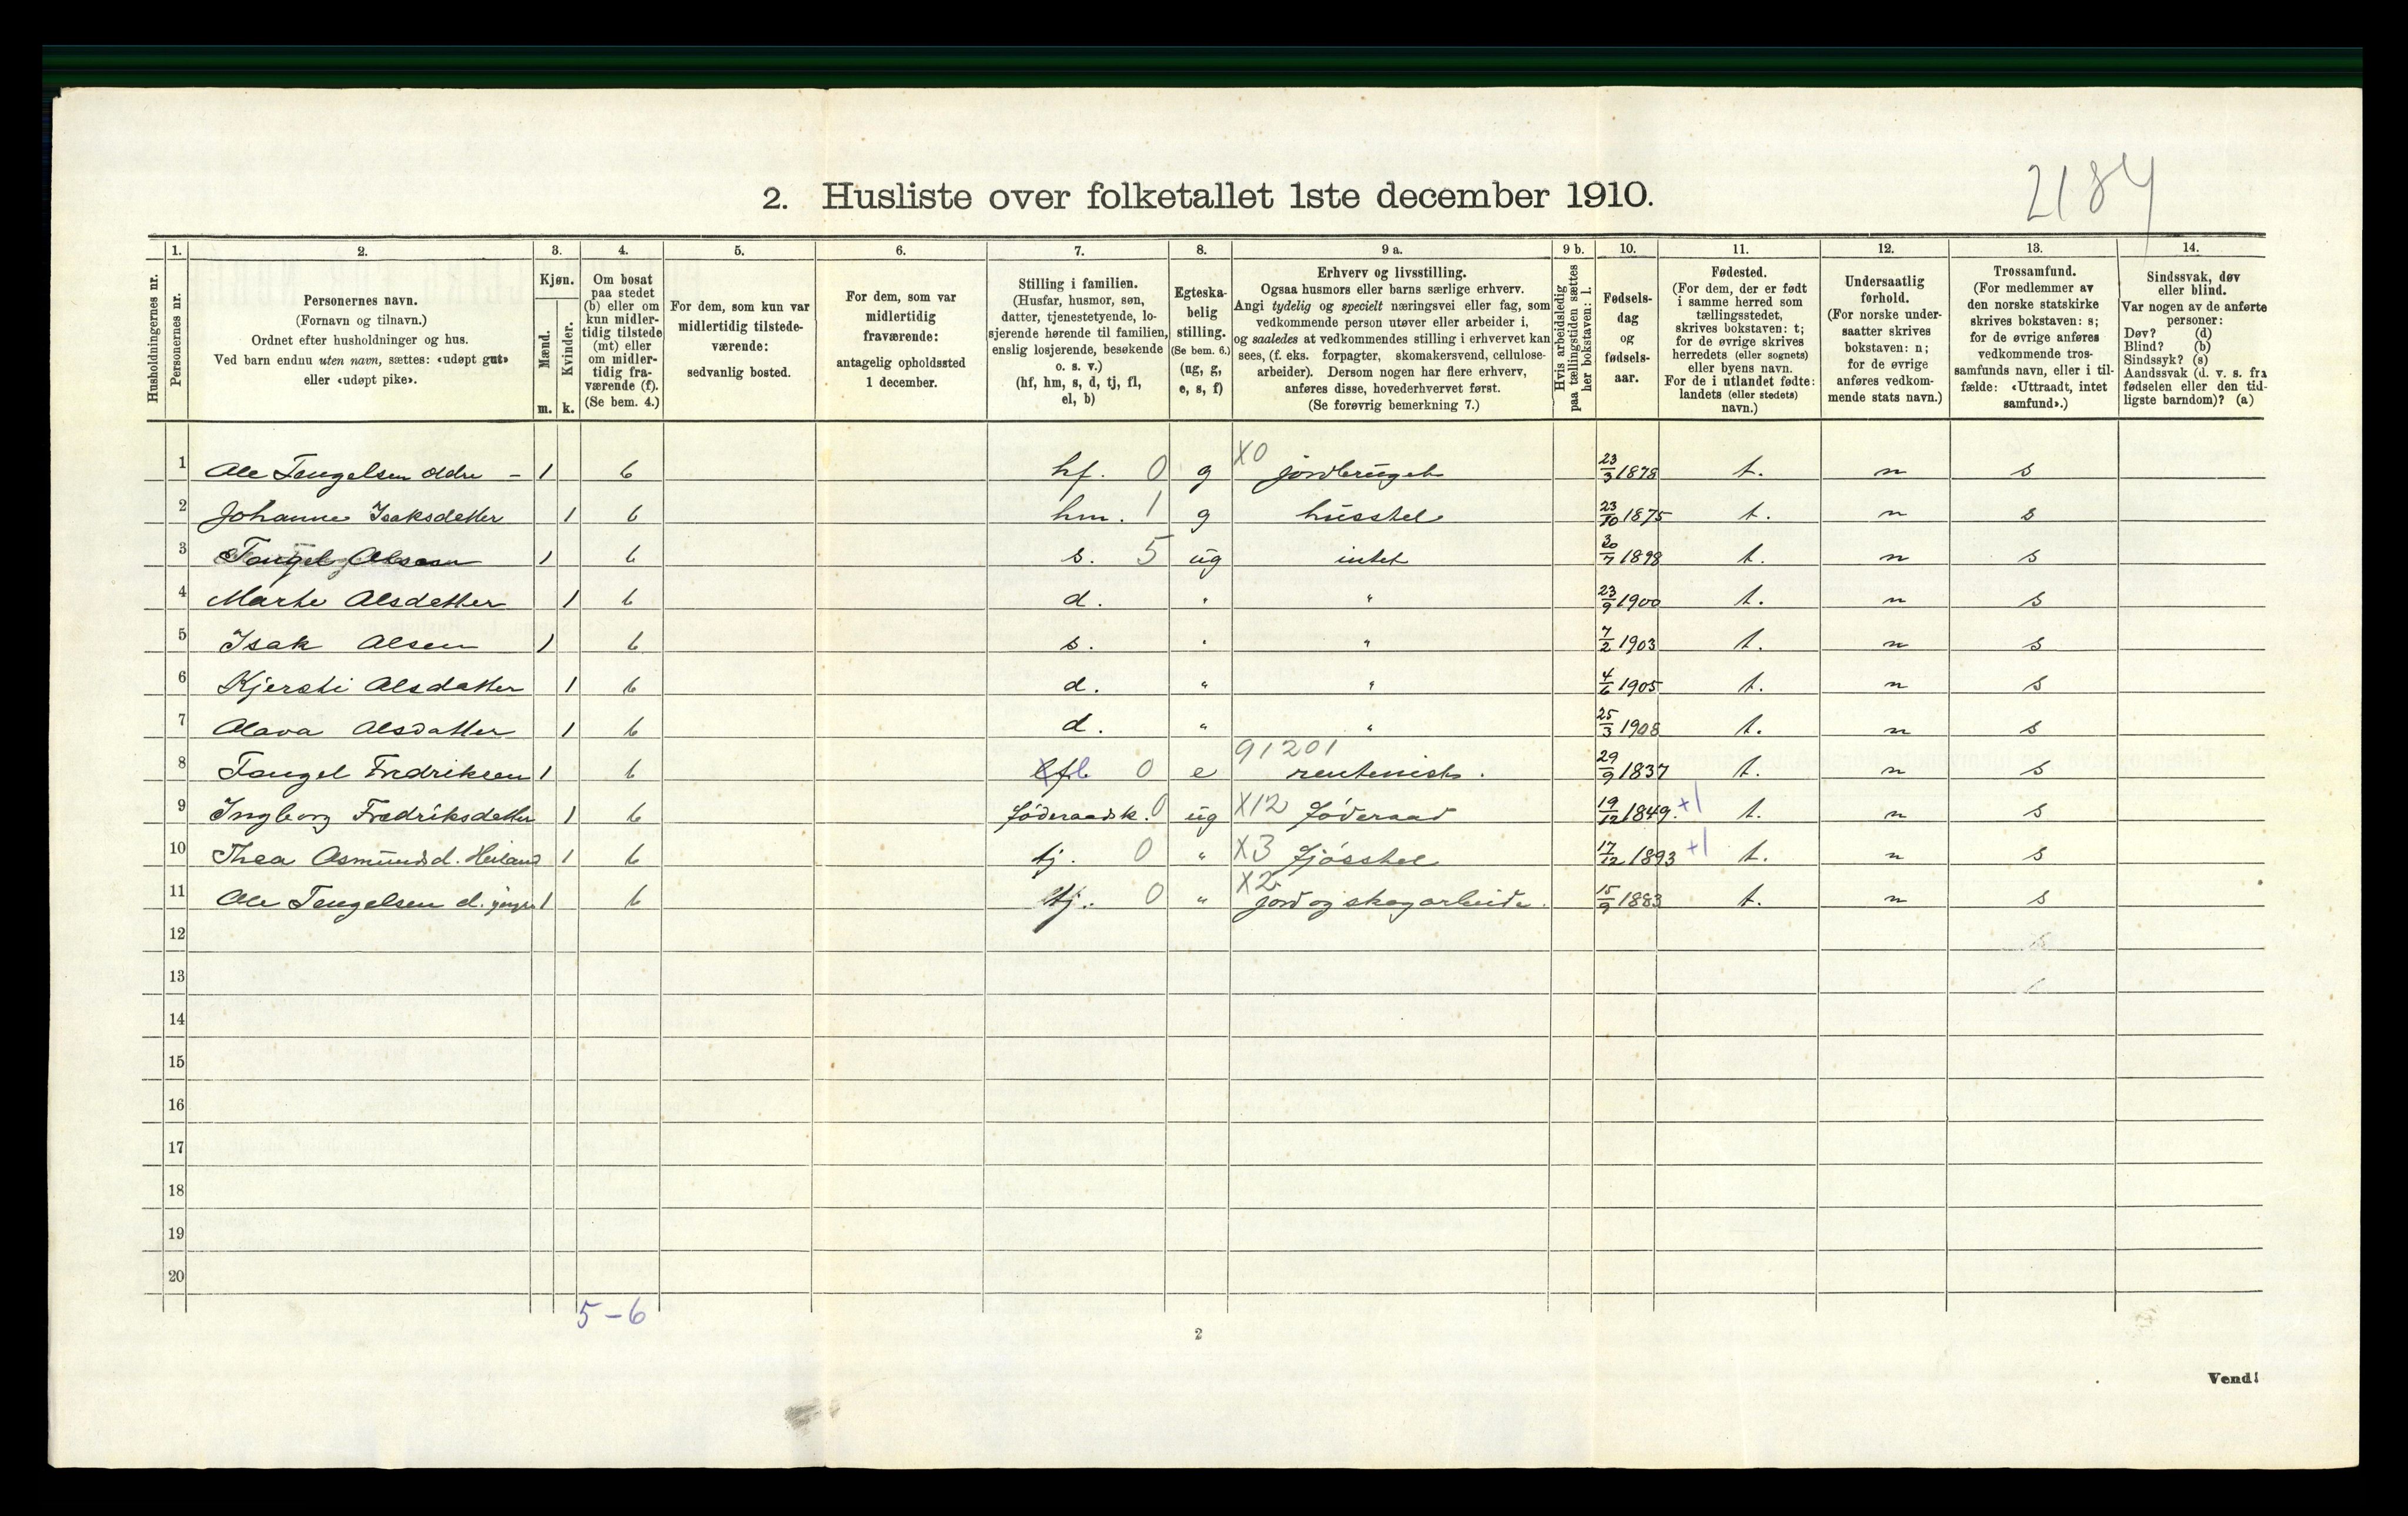 2184
2. Husliste over folketallet 1ste december 1910.
1. 2. 3. 4. 5. 6. 7. 8. 9 a. 9 b. 10. 11. 12. 13. 14.
Husholdningernes nr.
Personernes nr.
Personernes navn.
(Fornavn og tilnavn.)
Ordnet efter husholdninger og hus.
Ved barn endnu uten navn, sættes: «udøpt gut»
eller «udøpt pike».
Kjøn.
Mænd.
Kvinder.
m. k.
Om bosat
paa stedet
(b) eller om
kun midler-
tidig tilstede
(mt) eller
om midler-
tidig fra-
værende (f).
(Se bem. 4.)
For dem, som kun var
midlertidig tilstede-
værende:
sedvanlig bosted.
For dem, som var
midlertidig
fraværende:
antagelig opholdssted
1 december.
Stilling i familien.
(Husfar, husmor, søn,
datter, tjenestetyende, lo-
sjerende hørende til familien,
enslig losjerende, besøkende
o. s. v.)
(hf, hm, s, d, tj, fl,
el, b)
Egteska-
belig
stilling.
(Se bem. 6.)
(ug, g,
e, s, f)
Erhverv og livsstilling.
Ogsaa husmors eller barns særlige erhverv.
Angi tydelig og specielt næringsvei eller fag, som
vedkommende person utøver eller arbeider i,
og saaledes at vedkommendes stilling i erhvervet kan
sees, (f. eks. forpagter, skomakersvend, cellulose-
arbeider). Dersom nogen har flere erhverv,
anføres disse, hovederhvervet først.
(Se forøvrig bemerkning 7.)
Hvis arbeidsledig
paa tællingstiden sættes
her bokstaven: l.
Fødsels-
dag
og
fødsels-
aar.
Fødested.
(For dem, der er født
i samme herred som
tællingsstedet,
skrives bokstaven: t;
for de øvrige skrives
herredets (eller sognets)
eller byens navn.
For de i utlandet fødte:
landets (eller stedets)
navn.)
Undersaatlig
forhold.
(For norske under-
saatter skrives
bokstaven: n;
for de øvrige
anføres vedkom-
mende stats navn.)
Trossamfund.
(For medlemmer av
den norske statskirke
skrives bokstaven: s;
for de øvrige anføres
vedkommende tros-
samfunds navn, eller i til-
fælde: «Uttraadt, intet
samfund».)
Sindssvak, døv
eller blind.
Var nogen av de anførte
personer:
Døv? (d)
Blind? (b)
Sindssyk? (s)
Aandssvak (d. v. s. fra
fødselen eller den tid-
ligste barndom)? (a)
1 Ale Tengelsen eldre - 1 b hf. 0 g X0 jordbruger 23/3 1878 t. n s
2 Johanne Isaksdetter 1 b hm. 1 g husstel 23/10 1875 t. n s
3 Tengel Alesen 1 b s. 5 ug intet 30/7 1898 t. n s
4 Marte Alsdetter 1 b d. " " 23/9 1900 t. n s
5 Isak Alsen 1 b s. " " 7/2 1903 t. n s
6 Kjersti Alsdatter 1 b d. " " 4/6 1905 t. n s
7 Alava Alsdatter 1 b d. " " 25/3 1908 t. n s
8 Tengel Fredriksen 1 b 0 e 91201 rentenist. 29/9 1837 t. n s
9 Ingborg Fredriksdetter 1 b føderaadsk. 0 ug X12 føderaad 19/12 1849. +1 t. n s
10 Thea Asmundsd. Heiland 1 b tj. 0 " X3 fjøsstel 17/12 1893 +1 t. n s
11 Ale Tengelsen d. yngre 1 b tj. 0 " X2 jord og skogarbeide. 15/9 1883 t. n s
12
13
14
15
16
17
18
19
20
5-6
2
Vend!